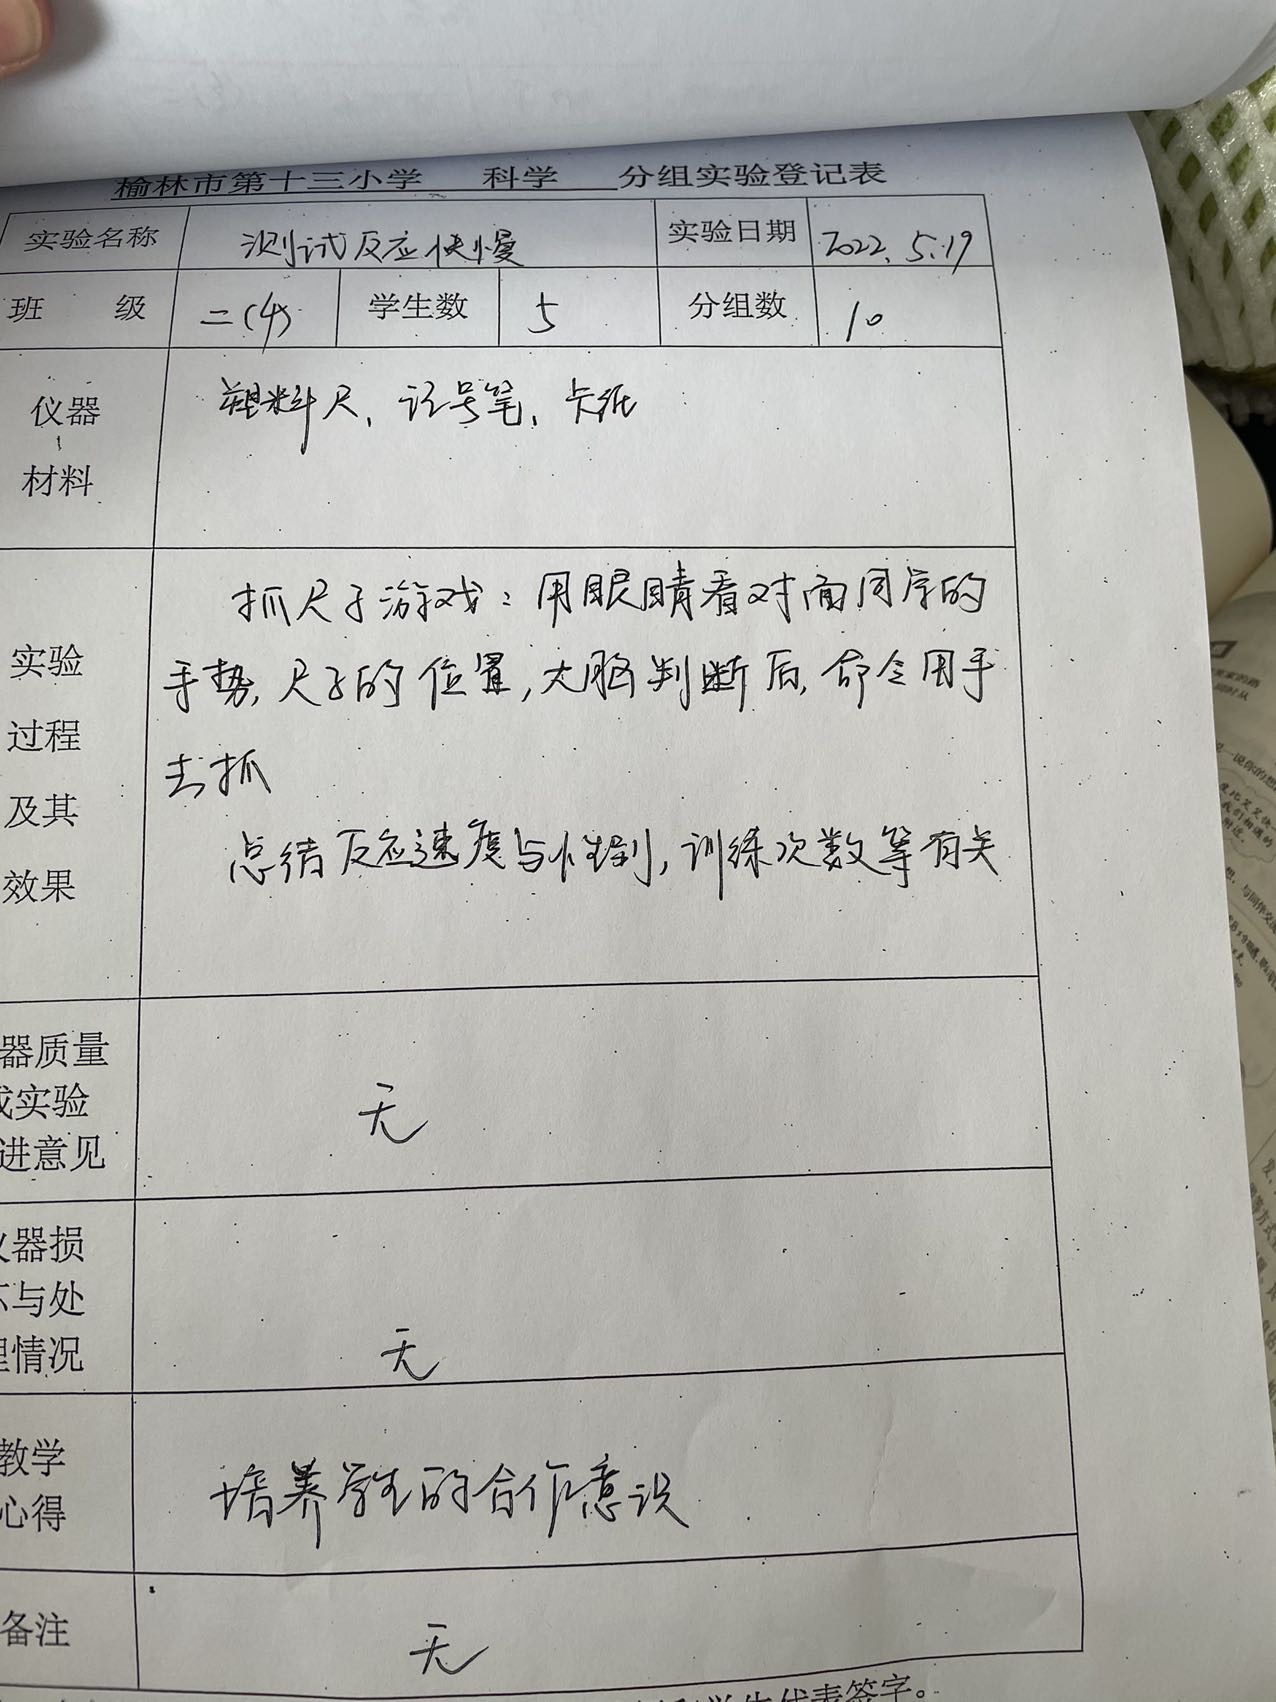 榆林市第十三小学 科学 分组实验登记表
实验名称 测试反应快慢 实验日期 2022.5.19
班 级 二(4) 学生数 5 分组数 10
仪器 材料 塑料尺、记号笔、卡纸
实验 过程 及其 效果
抓尺子游戏：用眼睛看对面同学的
手势,尺子的位置,大脑判断后,命令用手
去抓
总结反应速度与性别,训练次数等有关
器质量
实验
进意见
无
器损
与处
情况
无
教学
心得
培养学生的合作意识
备注 无
学生代表签字。